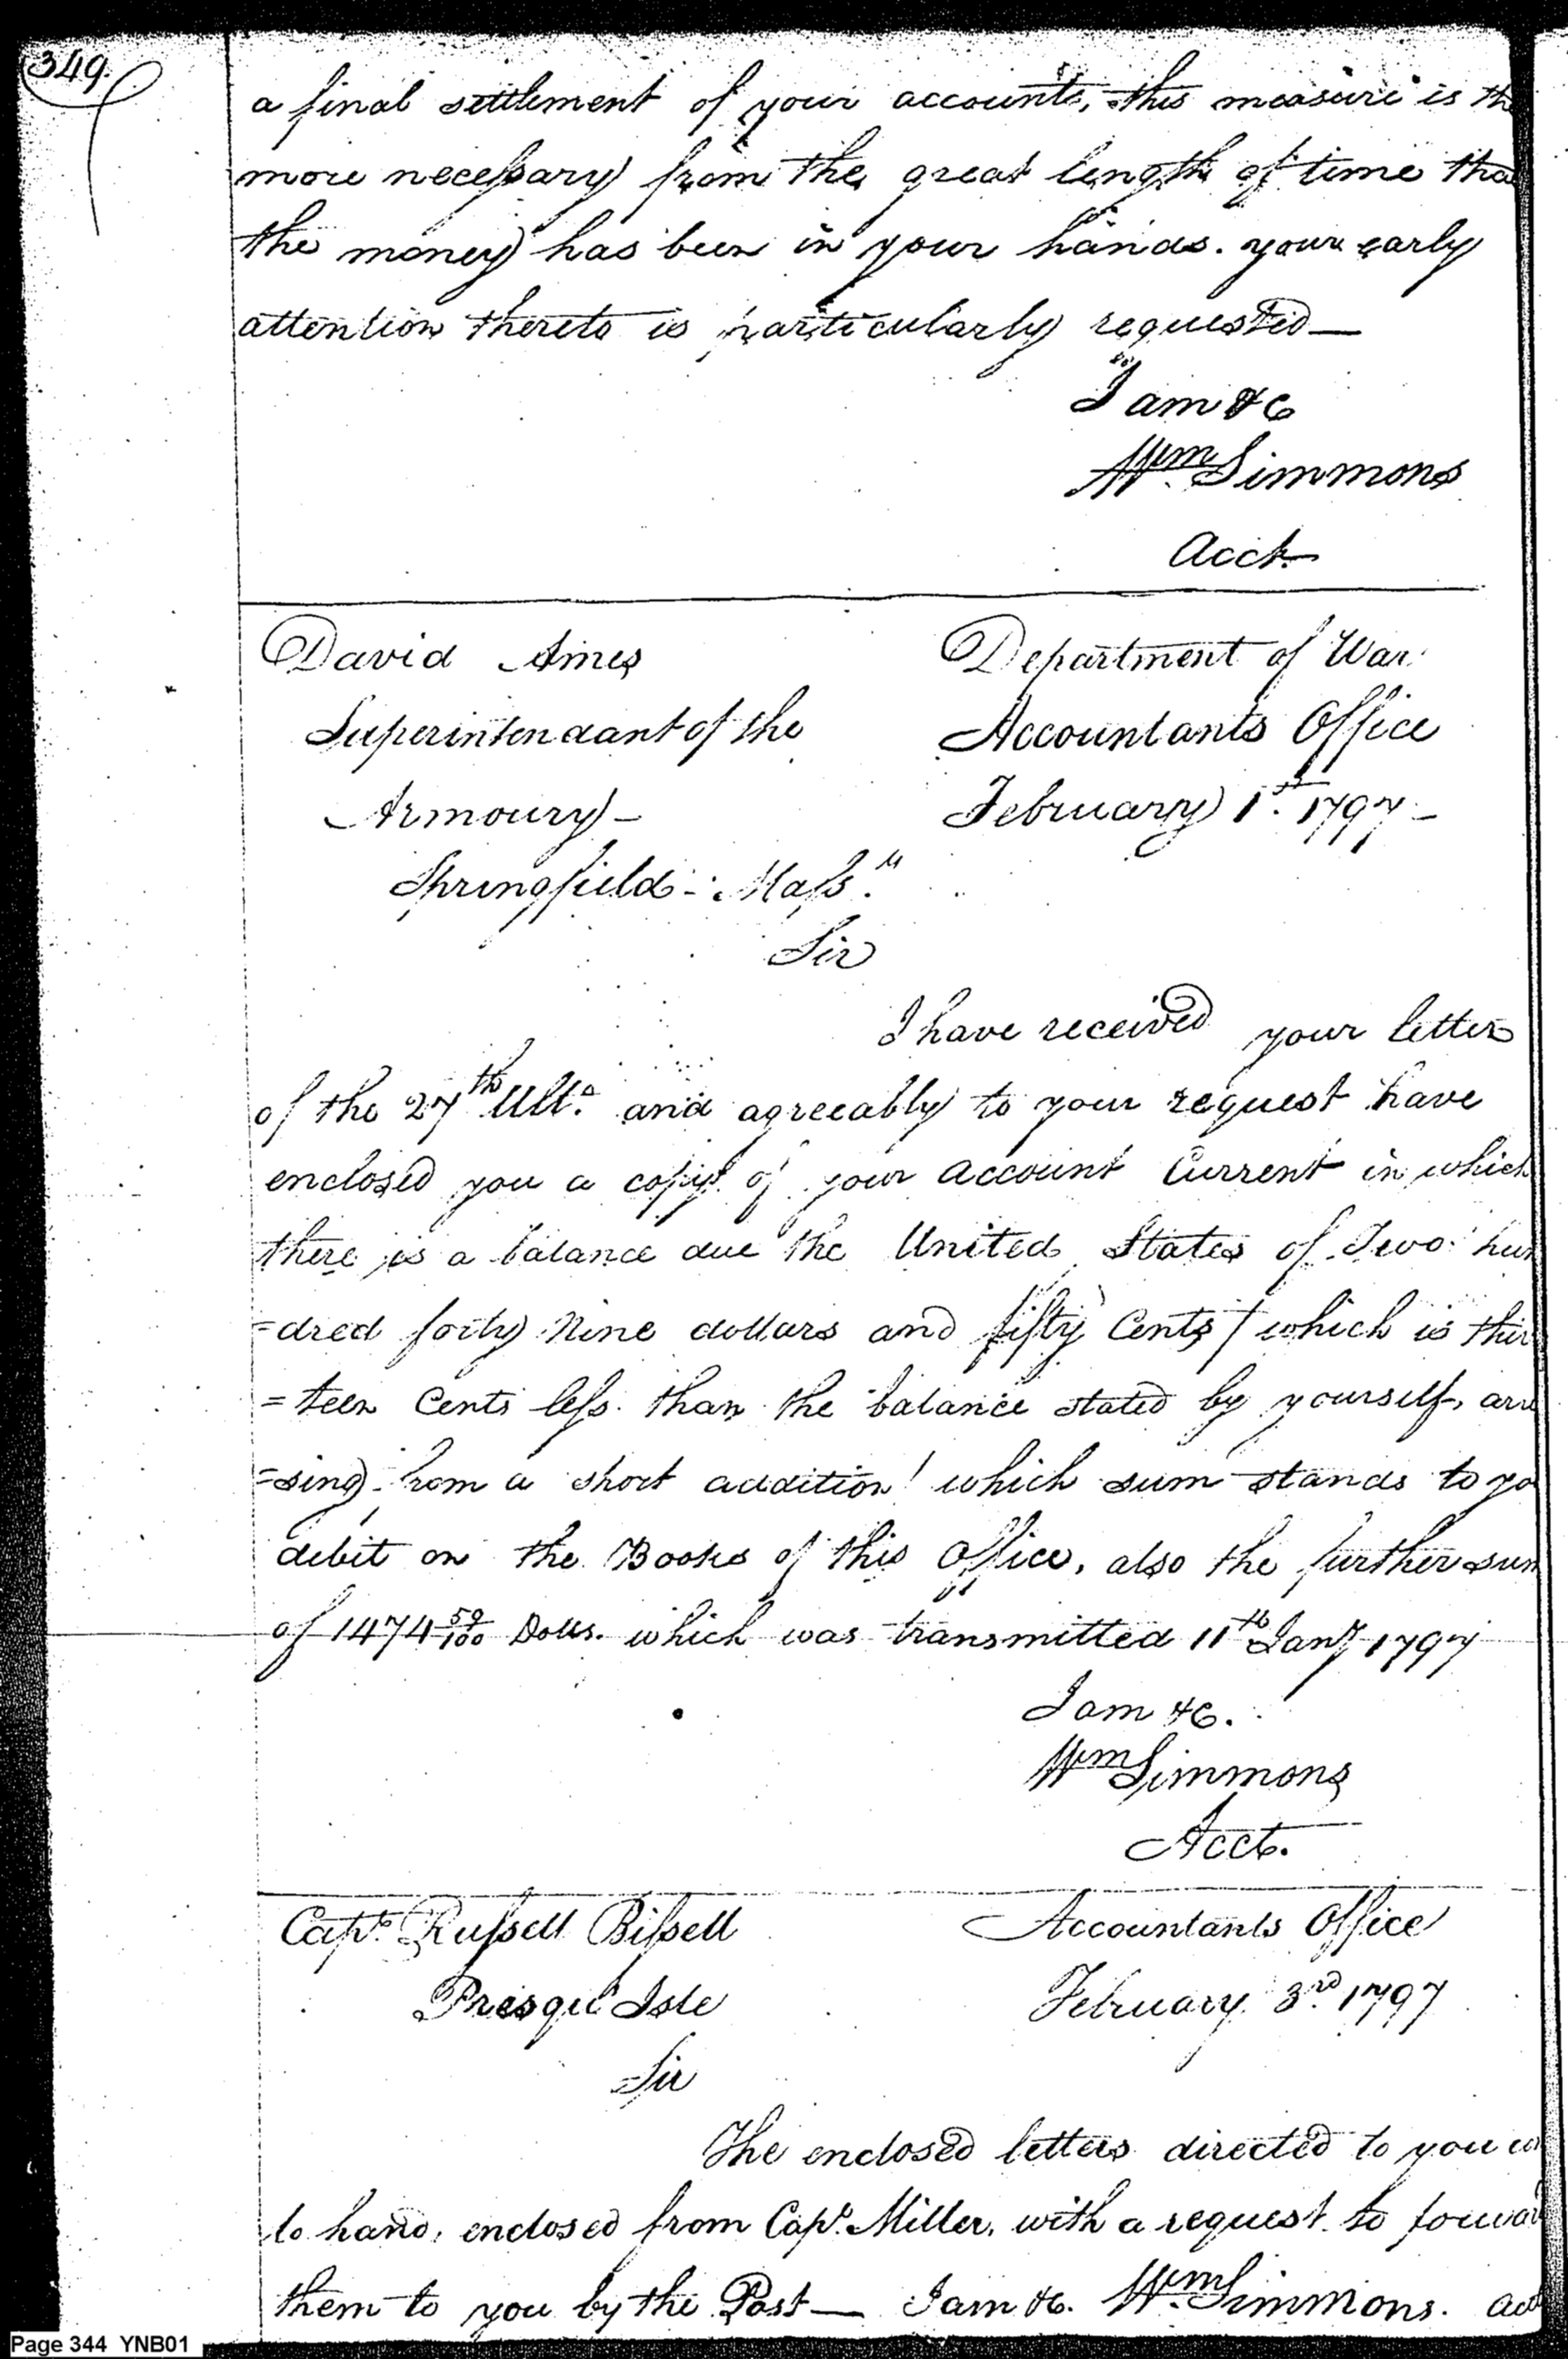 349.
a final settlement of your accounts, this measure is the
more necessary from the great length of time tha
the money has been in your hands. your early
attention thereto is particularly requested—
I am &c
Wm Simmons
Acct.
David Ames
Superintendant of the
Armoury –
Springfield – Mass.
Department of War
Accountants Office
February 1st. 1797 –
Sir
I have received your letter
of the 27th Ulto. and agreeably to your request have
enclosed you a copy of your account Current in which
there is a balance due the United States of Two hun
=dred forty Nine dollars and fifty Cents / which is thir
=teen Cents less than the balance stated by yourself, ari
=sing from a short addition / which sum stands to yo
debit on the Books of this Office, also the further sum
of 1474 59/100 Dolls. which was transmitted 11th Jany 1797
I am &c.
Wm Simmons
Acct.
Capt. Russell Bissell
Presqu' Isle
Accountants Office
February 3rd 1797
Sir
The enclosed letters directed to you
to hand, enclosed from Capt. Miller, with a request to forwar
them to you by the Post — I am &c. Wm Simmons. Acct
Page 344 YNB01